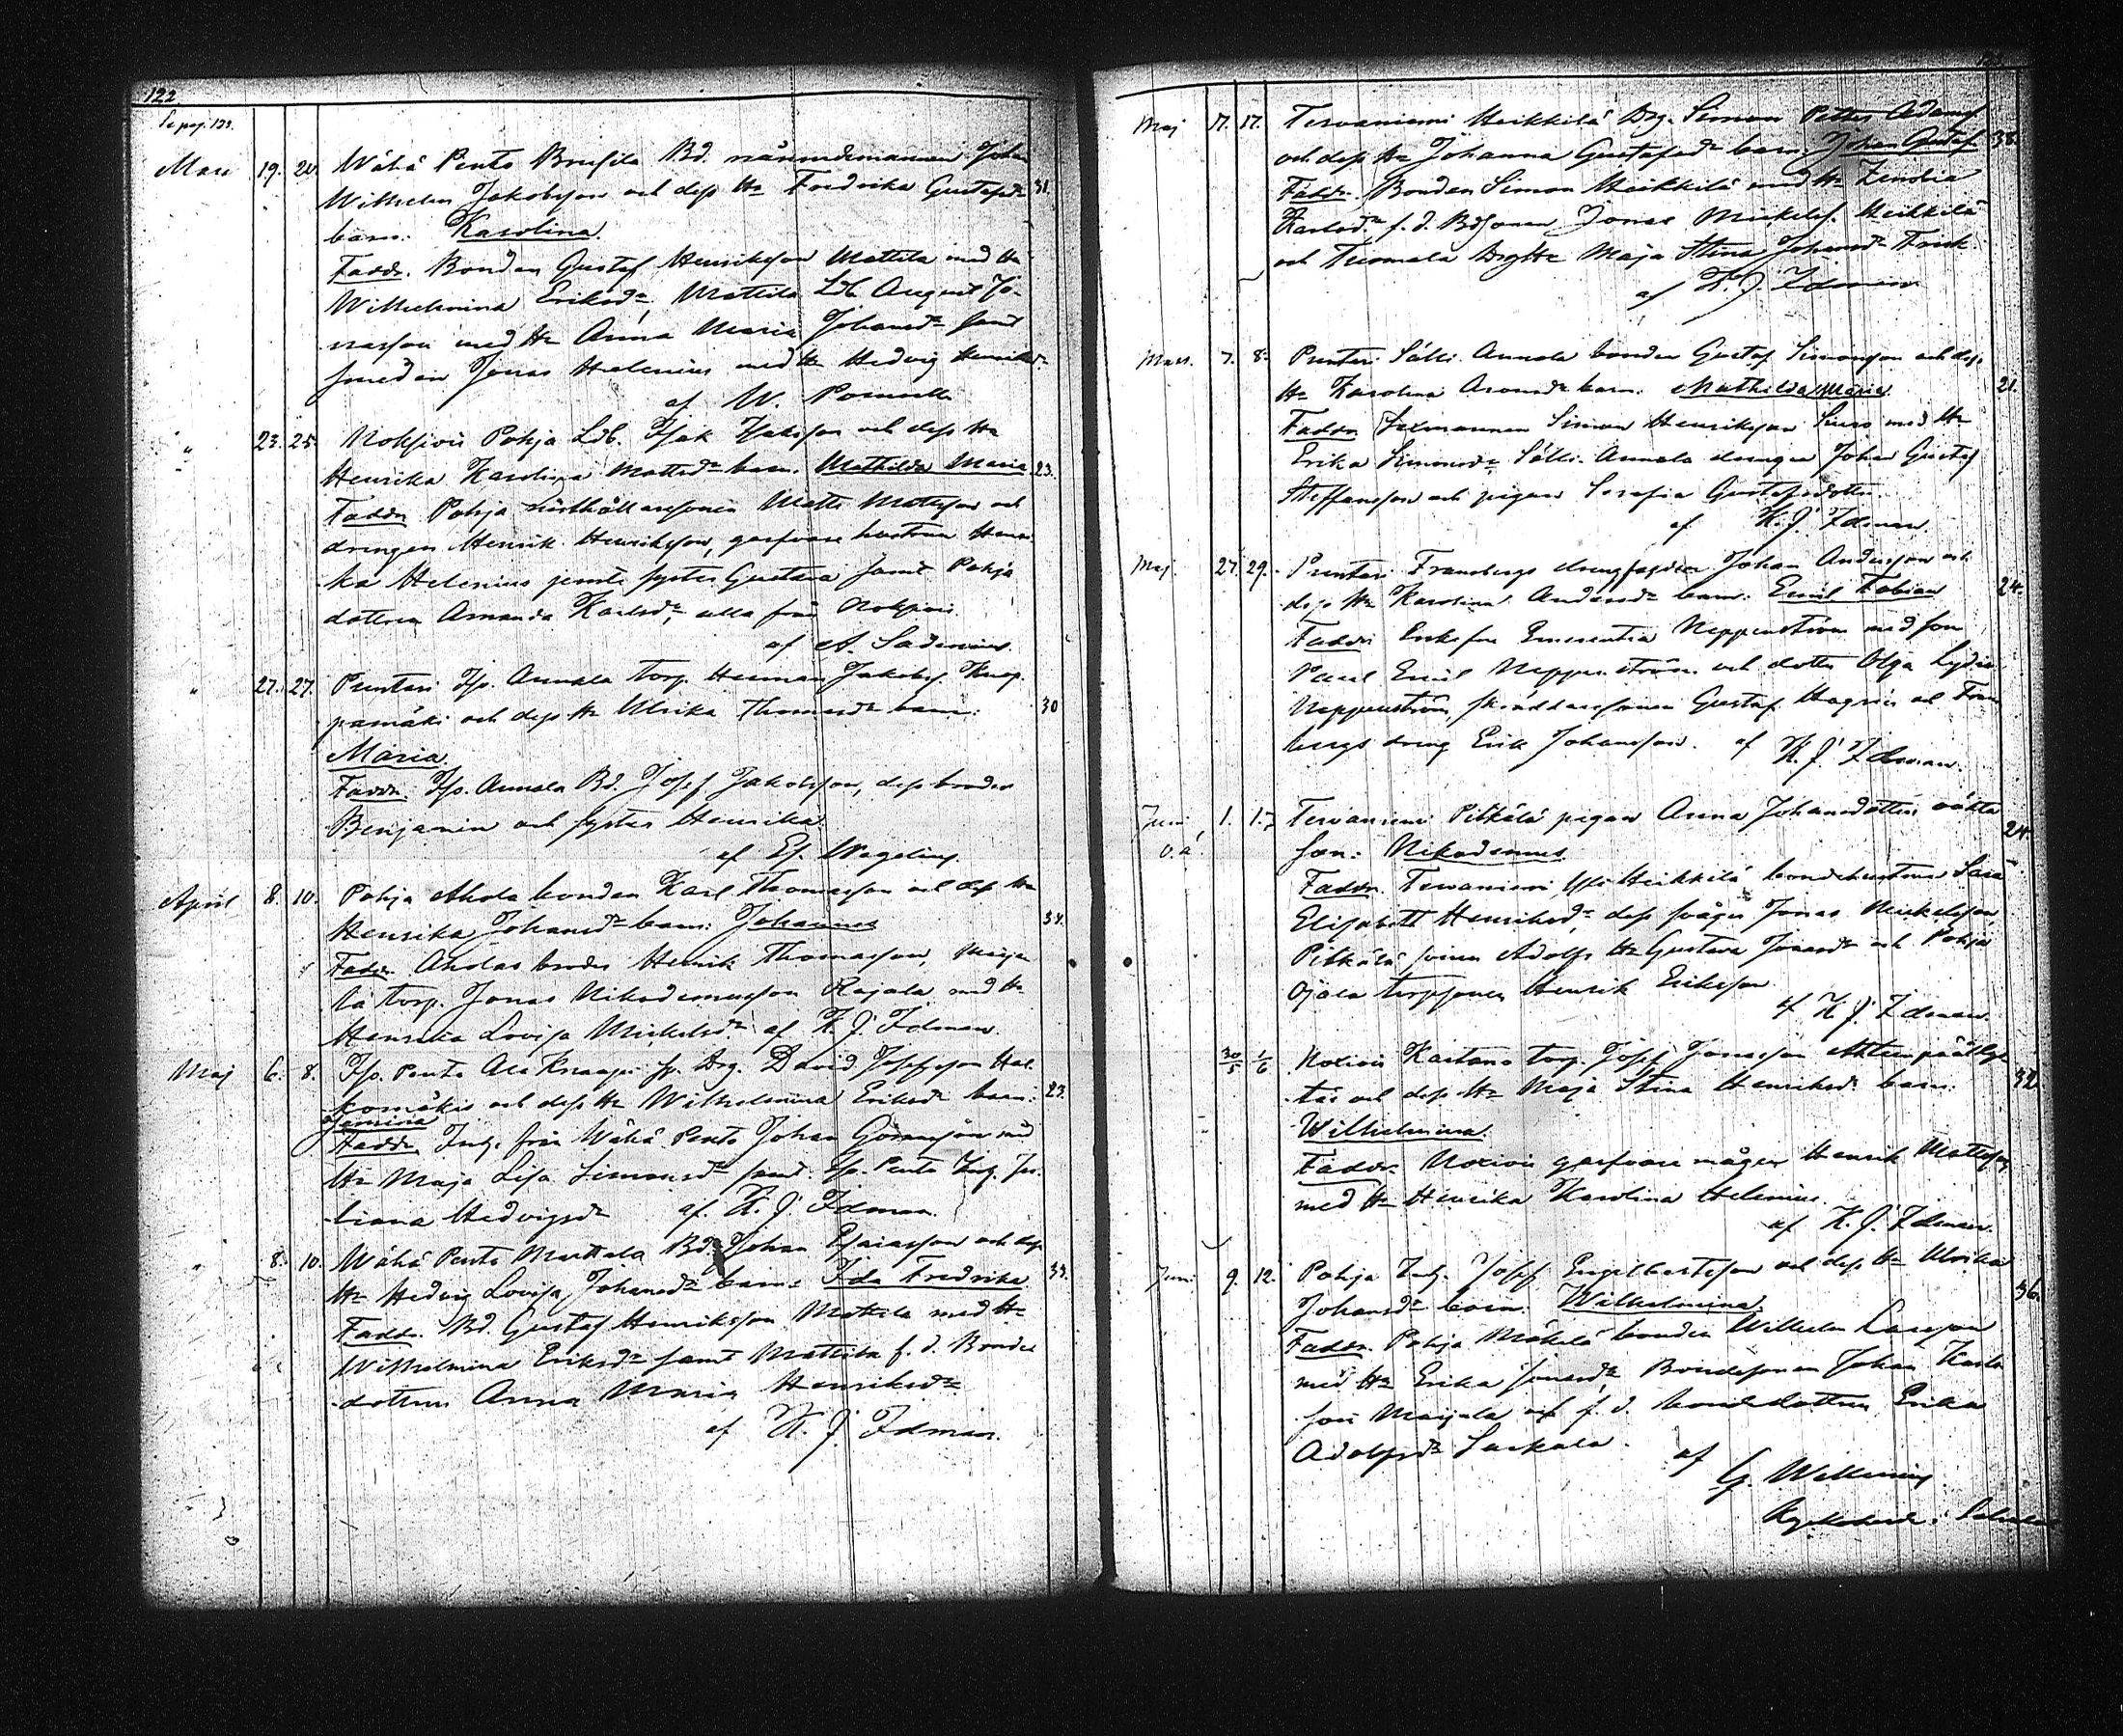 122
Se pag. 123.
Mars 19. 20. Wähä Pento Brusila Bd. nämndemannen Johan
Wilhelm Jakobsson och dess H. Fredrika Gustafsdr 31.
barn: Karolina.
Faddr. Bonden Gustaf Henriksson Mattila med H.
Wilhelmina Eriksdr, Mattila Ldb. August Jo-
nasson med H. Anna Maria Johansdr samt
smeden Jonas Helenius med H. Hedvig Henriksdr.
af W. Pomell
" 23. 25. Noksjois Pohja Ldb. Isak Isaksson och dess H.
Henrika Karolina Mattsdr barn. Mathilda Maria 23.
Faddr. Pohja rusthållaresonen Matts Mattsson och
drengen Henrik Henriksson, garfvare hustrun Hen-
ka Helenius jemte syster Gustava samt Pohja
dottren Amanda Karlsdr, alla från Noksjois.
af A. Sadenius.
" 27. 27. Puntari Iso Annala torp. Herman Jakobs. Knap-
pamäki och dess H. Ulrika Thomasdr barn: 30
Maria.
Faddr. Iso. Annala Bd. Josef Jakobsson, dess broder
Benjamin och syster Henrika.
af Ef. Wegelius.
April 8. 10. Pohja Ahola bonden Karl Thomasson och dess H.
Henrika Johansdr barn: Johannes 34.
Faddr. Aholas broder Henrik Thomasson, Maija-
la torp. Jonas Nikodemusson Rajala med H.
Henrika Lovisa Mickelsdr. af K. J. Idman.
Maj 6. 8. Iso. Pento Ala Knaapi sp. Drg. David Josefsson Hal-
komäki och dess H. Wilhelmina Eriksdr barn: 23.
Jemina
Faddr. Inh. från Wähä Pento Johan Göransson med
H. Maja Lisa Simonsdr samt Iso. Pento Inh. Ju-
liana Hedvigsdr af. K. J. Idman.
8. 10. Wähä Pento Marttala Bd. Johan Esaiasson och dess
H. Hedvig Lovisa Johansdr barn: Ida Fredrika 33.
Faddr. Bd. Gustaf Henriksson Mattila med H.
Wilhelmina Eriksdr samt Mattila f. d. Bonde
dottren Anna Maria Henriksdr
af K. J. Idman.
123
Maj 17. 17. Tervaniemi Heikkilä Drg. Simon Petter Adamss.
och dess H. Johanna Gustafsdr barn. Johan Gustaf 38.
Faddr. Bonden Simon Heikkilä med H.
Karlsdr f. d. Bdsonen Jonas Mickels. Heikkilä
och Tuomala DrgH. Maja Stina Johansdr Frisk.
af K. J. Idman
Mars. 7. 8. Puntari Sälli. Annala bonden Gustaf Simonsson och dess
H. Karolina Aronsdr barn. Mathilda Maria. 21.
Faddr. Sexmannen Simon Henriksson med H.
Erika Simonsdr Sälli-Annala drengen Johan Gustaf
Steffansson och pigan Serafia Gustafsdotter.
af K. J. Idman
Maj 27. 29. Puntari Fransbergs drengen Johan Andersson och
dess H. Karolina Andersdr barn: Emil Fabian 24.
Faddr. Enkefru Emerentia Neppenström med son
Paul Emil Neppenström och dotter Olga Lydia
Neppenström, skräddaresonen Gustaf Hagrén och Frans-
bergs dreng Erik Johansson. af K. J. Idman.
Juni 1. 1. Tervaniemi Pitkälä pigan Anna Johansdotters oäkta 24.
o. ä. son: Nikodemus
Faddr. Tervaniemi Heikkilä bondehustrun Sara
Elisabeth Henriksdr, dess svåger Jonas Mickelsson,
Pitkälä Adolfs H. Gustava Jonasdr och Pohja
Ojala torpsonen Henrik Eriksson.
af K. J. Idman.
30/5 1/6 Noxiois Kaitans torp. Josef Jonasson
och dess H. Maja Stina Henriksdr barn. 32.
Wilhelmina.
Faddr. Noxiois garfvare mågen Henrik Mattsson
med H. Henrika Karolina Helenius.
af K. J. Idman.
Juni 9. 12. Pohja Inh. Josef Engelbertsson och dess H. Ulrika
Johansdr barn: Wilhelmina. 36.
Faddr. Pohja Mäkelä bonden Wilhelm Larsson
med H. Erika Jonasdr Bondesonen Johan Karls-
son Maijala och f. d. bondedottren Erika
Adolfsdr Laskala.
af G. Wallenius